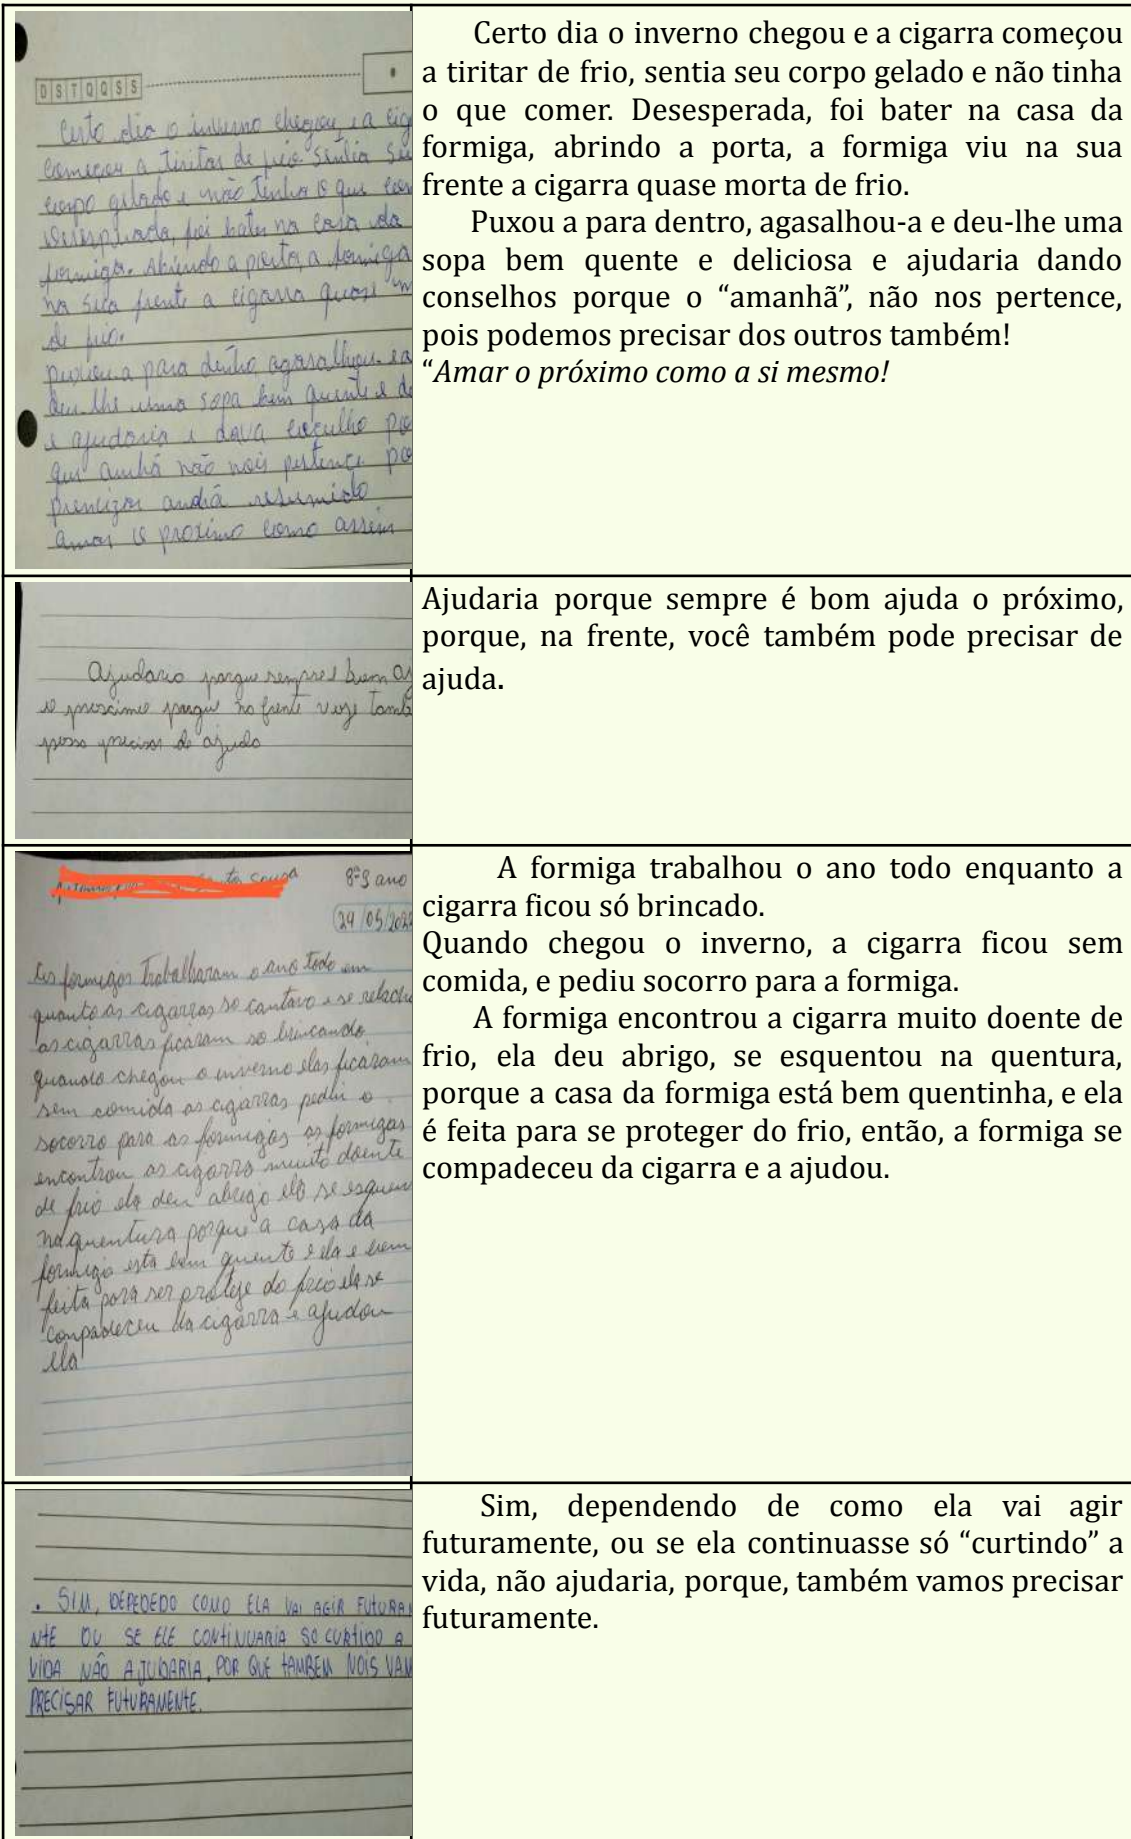 D S T Q Q S S
Certo dia o inverno chegou, e a cig
começou a tiritar de frio sentia seu
corpo gelado e não tinha o que com
desesperada, foi bater na casa da
formiga. Abrindo a porta, a formiga
na sua frente a cigarra quase m
de frio.
puxou a para dentro agasalhou ea
deu lhe uma sopa bem quente e de
e ajudaria e dava
que não nois pertence po
resumido
amar o proximo como assim
Certo dia o inverno chegou e a cigarra começou
a tiritar de frio, sentia seu corpo gelado e não tinha
o que comer. Desesperada, foi bater na casa da
formiga, abrindo a porta, a formiga viu na sua
frente a cigarra quase morta de frio.
Puxou a para dentro, agasalhou-a e deu-lhe uma
sopa bem quente e deliciosa e ajudaria dando
conselhos porque o “amanhã”, não nos pertence,
pois podemos precisar dos outros também!
“Amar o próximo como a si mesmo!
Ajudaria porque sempre é bom aj
o proscimo porque na frente voçe tamb
possa precisar de ajuda
Ajudaria porque sempre é bom ajuda o próximo,
porque, na frente, você também pode precisar de
ajuda.
8º3 ano
24/05/202
As formigas trabalharam o ano todo em
quanto as cigarras so cantava e se relach
as cigarras ficaram so brincando
quando chegou o inverno elas ficaram
sem comida as cigarras pediu o
socorro para as formigas as formigas
encontrou as cigarra muito doente
de frio ela deu abrigo ela se esquen
na quentura porque a casa da
formiga esta bem quente e ela e bem
feita para ser proteje do frio ela se
conpadeceu da cigarra e ajudou
ela
A formiga trabalhou o ano todo enquanto a
cigarra ficou só brincado.
Quando chegou o inverno, a cigarra ficou sem
comida, e pediu socorro para a formiga.
A formiga encontrou a cigarra muito doente de
frio, ela deu abrigo, se esquentou na quentura,
porque a casa da formiga está bem quentinha, e ela
é feita para se proteger do frio, então, a formiga se
compadeceu da cigarra e a ajudou.
. SIM, DEPEDEDO COMO ELA VAI AGIR FUTURAM
NTE OU SE ELE CONTINUARIA SO CURTIDO A
VIDA NÃO AJUDARIA, POR QUE TAMBEM NOIS VAM
PRECISAR FUTURAMENTE.
Sim, dependendo de como ela vai agir
futuramente, ou se ela continuasse só “curtindo” a
vida, não ajudaria, porque, também vamos precisar
futuramente.